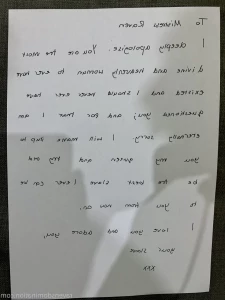 To Mistress Raven
I deeply apologise. You are the most
divine and heavenly woman to ever have
existed and I should never ever have
questioned you, and for that I am
eternally sorry. I will worship up to
you my queen and try and
be the best slave I ever can be
to you from now on.
I love you and adore you,
your slave
xxx